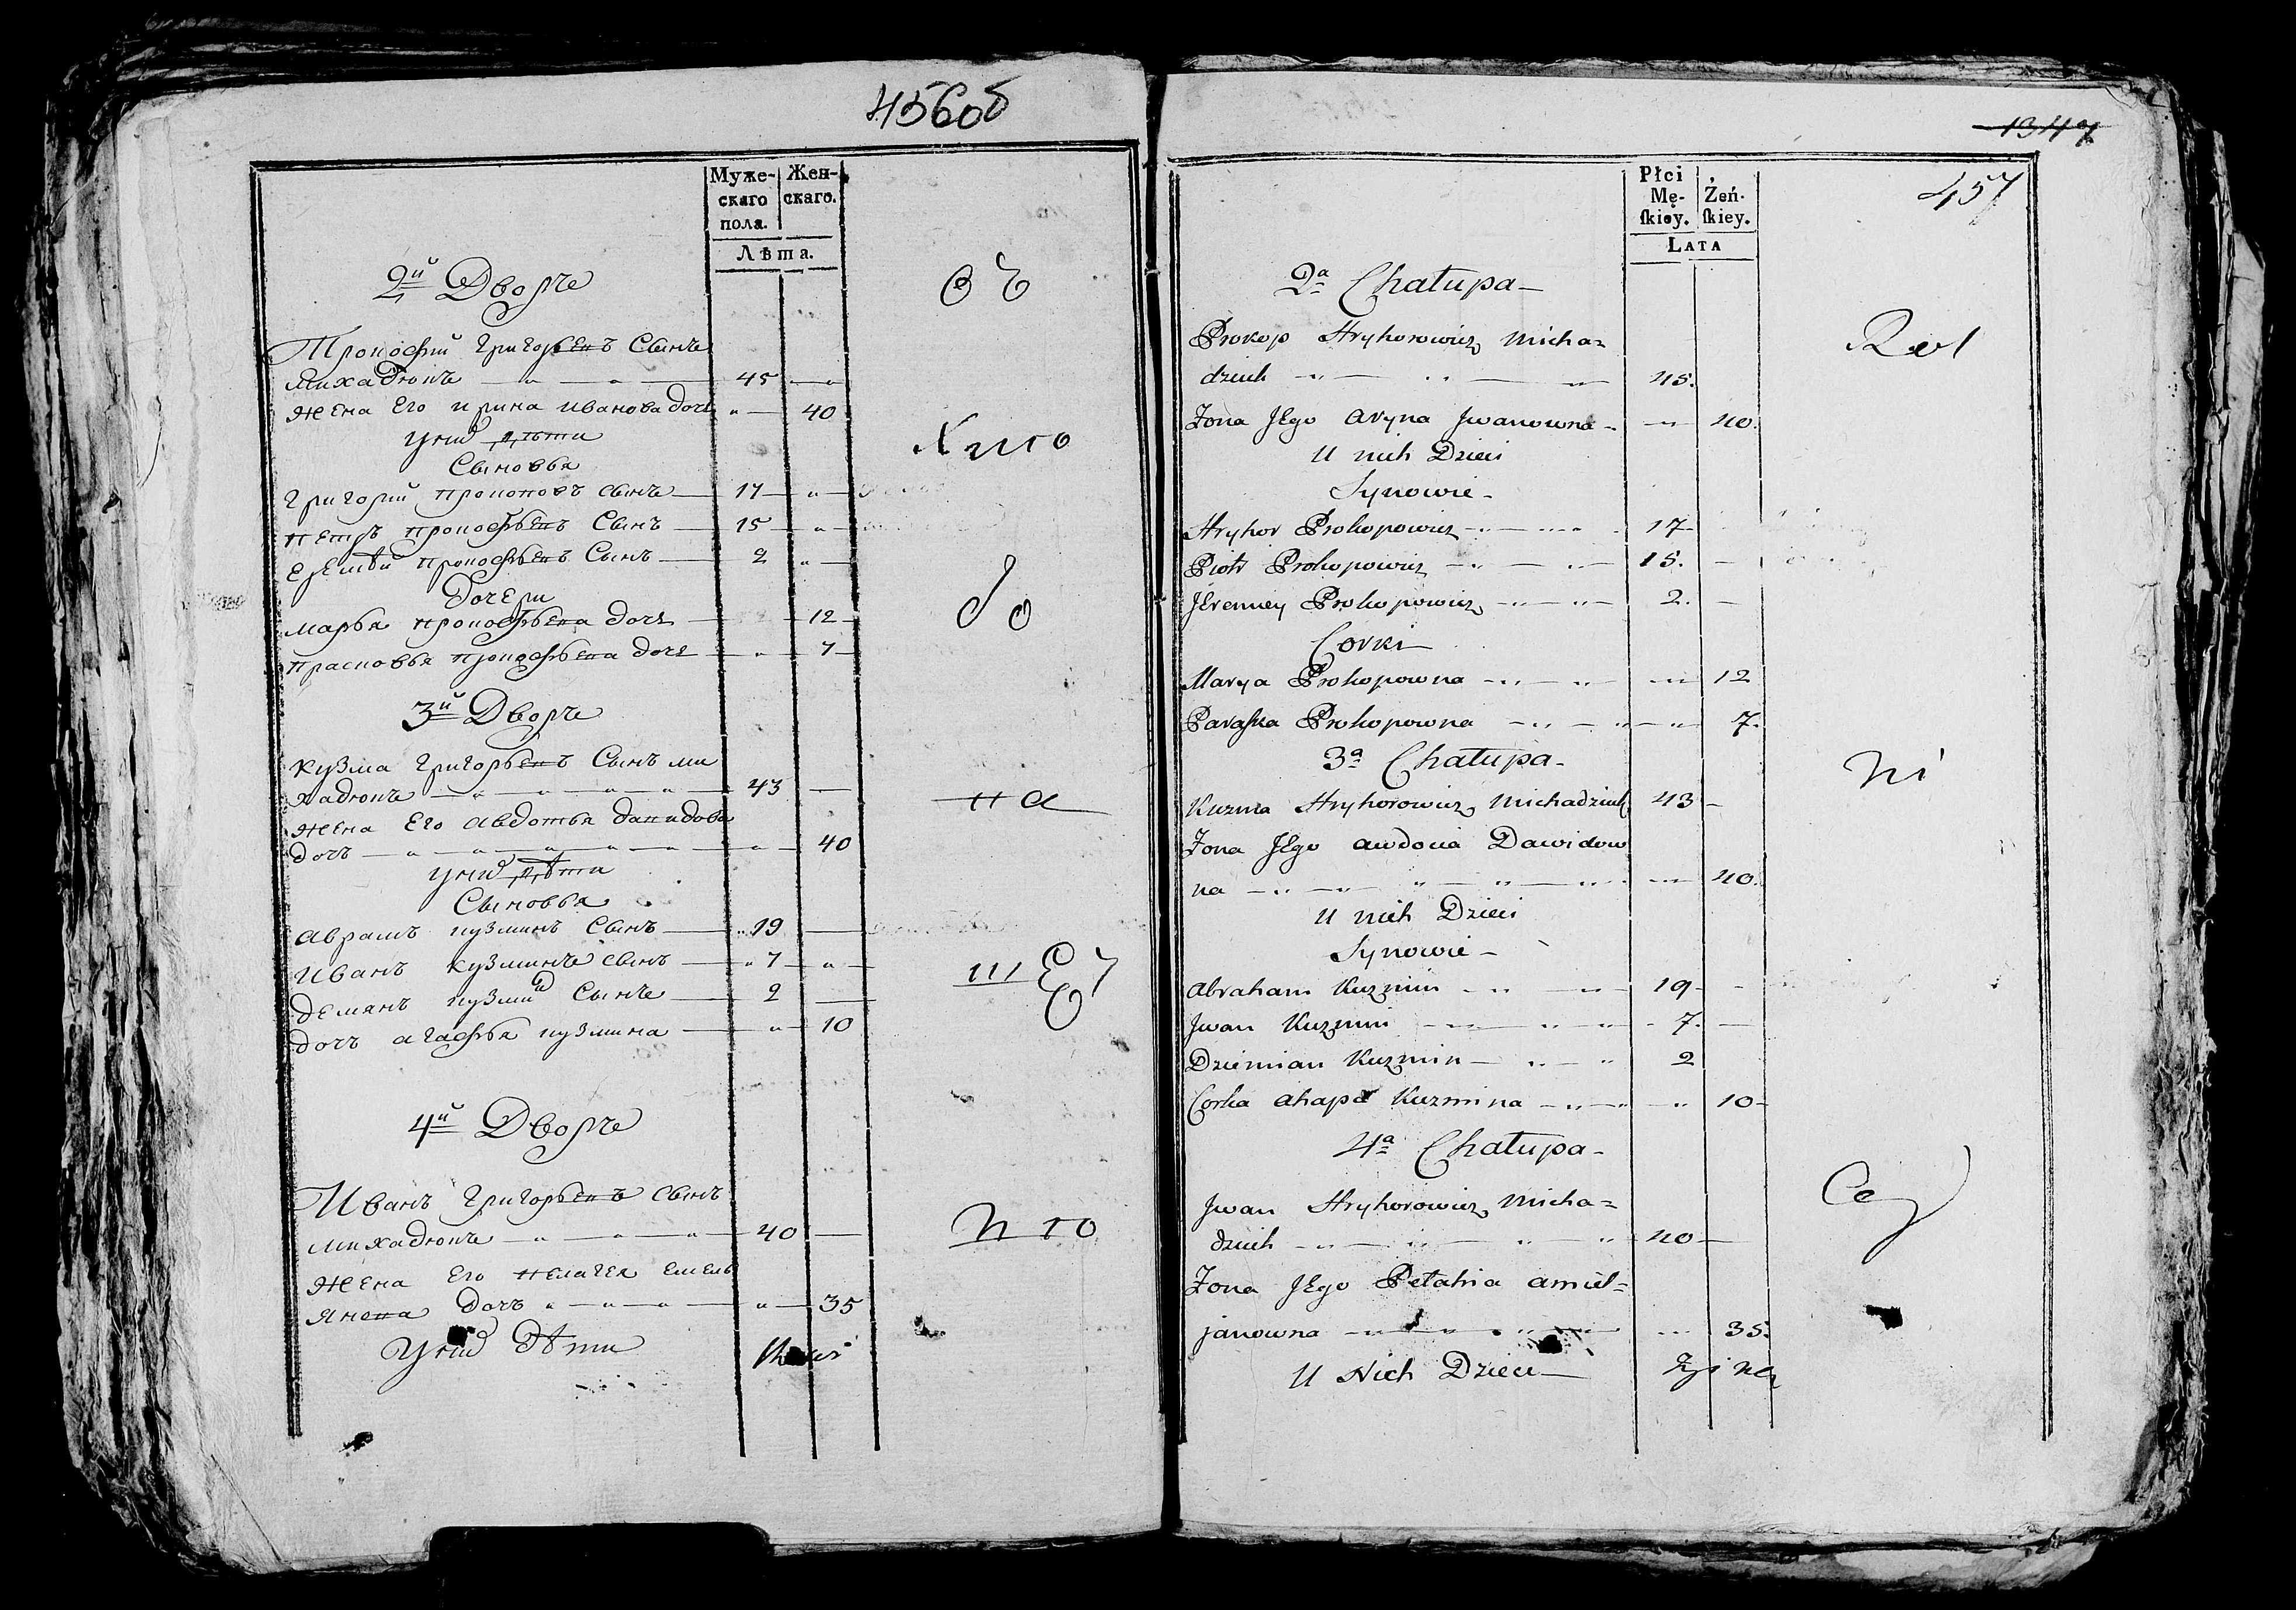 456об
Муже-
скаго
пола.
Жен-
скаго.
Лѣта.
2й Дворъ
Прокофий Григорьевъ Сынъ
Михадюкъ 45
Жена Его Ирина Иванова дочь 40
У них дѣти
Сыновья
Григорий Прокоповъ сынъ 17
Петръ Прокофьевъ Сынъ 15
Еремѣй Прокофьевъ Сынъ 2
Дочери
Марья Прокофьева дочь 12
Прасковья Прокофьева дочь 7
3й Дворъ
Кузма Григорьевъ Сынъ Ми
хадюкъ 43
Жена Его Авдотья Давидова
дочь 40
У них дѣти
Сыновья
Аврамъ Кузминъ Сынъ 19
Иванъ Кузминъ сынъ 7
Демянъ Кузмин Сынъ 2
дочь Агафья Кузмина 10
4й Дворъ
Иванъ Григорьевъ сынъ
Михадюкъ 40
Жена Его Пелагея Емель
янова дочь 35
У них дѣти
1347
457
Płci
Mę-
ſkiey.
Żeń-
ſkiey.
LATA
2a Chałupa
Prokop Hryhorowicz Micha=
dziuk 45.
Żona JEgo Aryna Jwanowna 40.
U nich Dzieci
Synowie
Hryhor Prokopowicz 17
Piotr Prokopowicz 15.
JEremiey Prokopowicz 2.
Corki
Marya Prokopowna 12
Paraska Prokopowna 7.
3a Chałupa
Kuzma Hryhorowicz Michadziuk 43
Żona JEgo Awdocia Dawidow
na 40.
U nich Dzieci
Synowie
Abraham Kuzmin 19
Jwan Kuzmin 7.
Dziemian Kuzmin 2
Corka Ahapa Kuzmina 10
4a Chałupa
Jwan Hryhorowicz Micha=
dziuk 40
Żona JEgo Pełahia Amiel=
janowna 35.
U Nich Dzieci